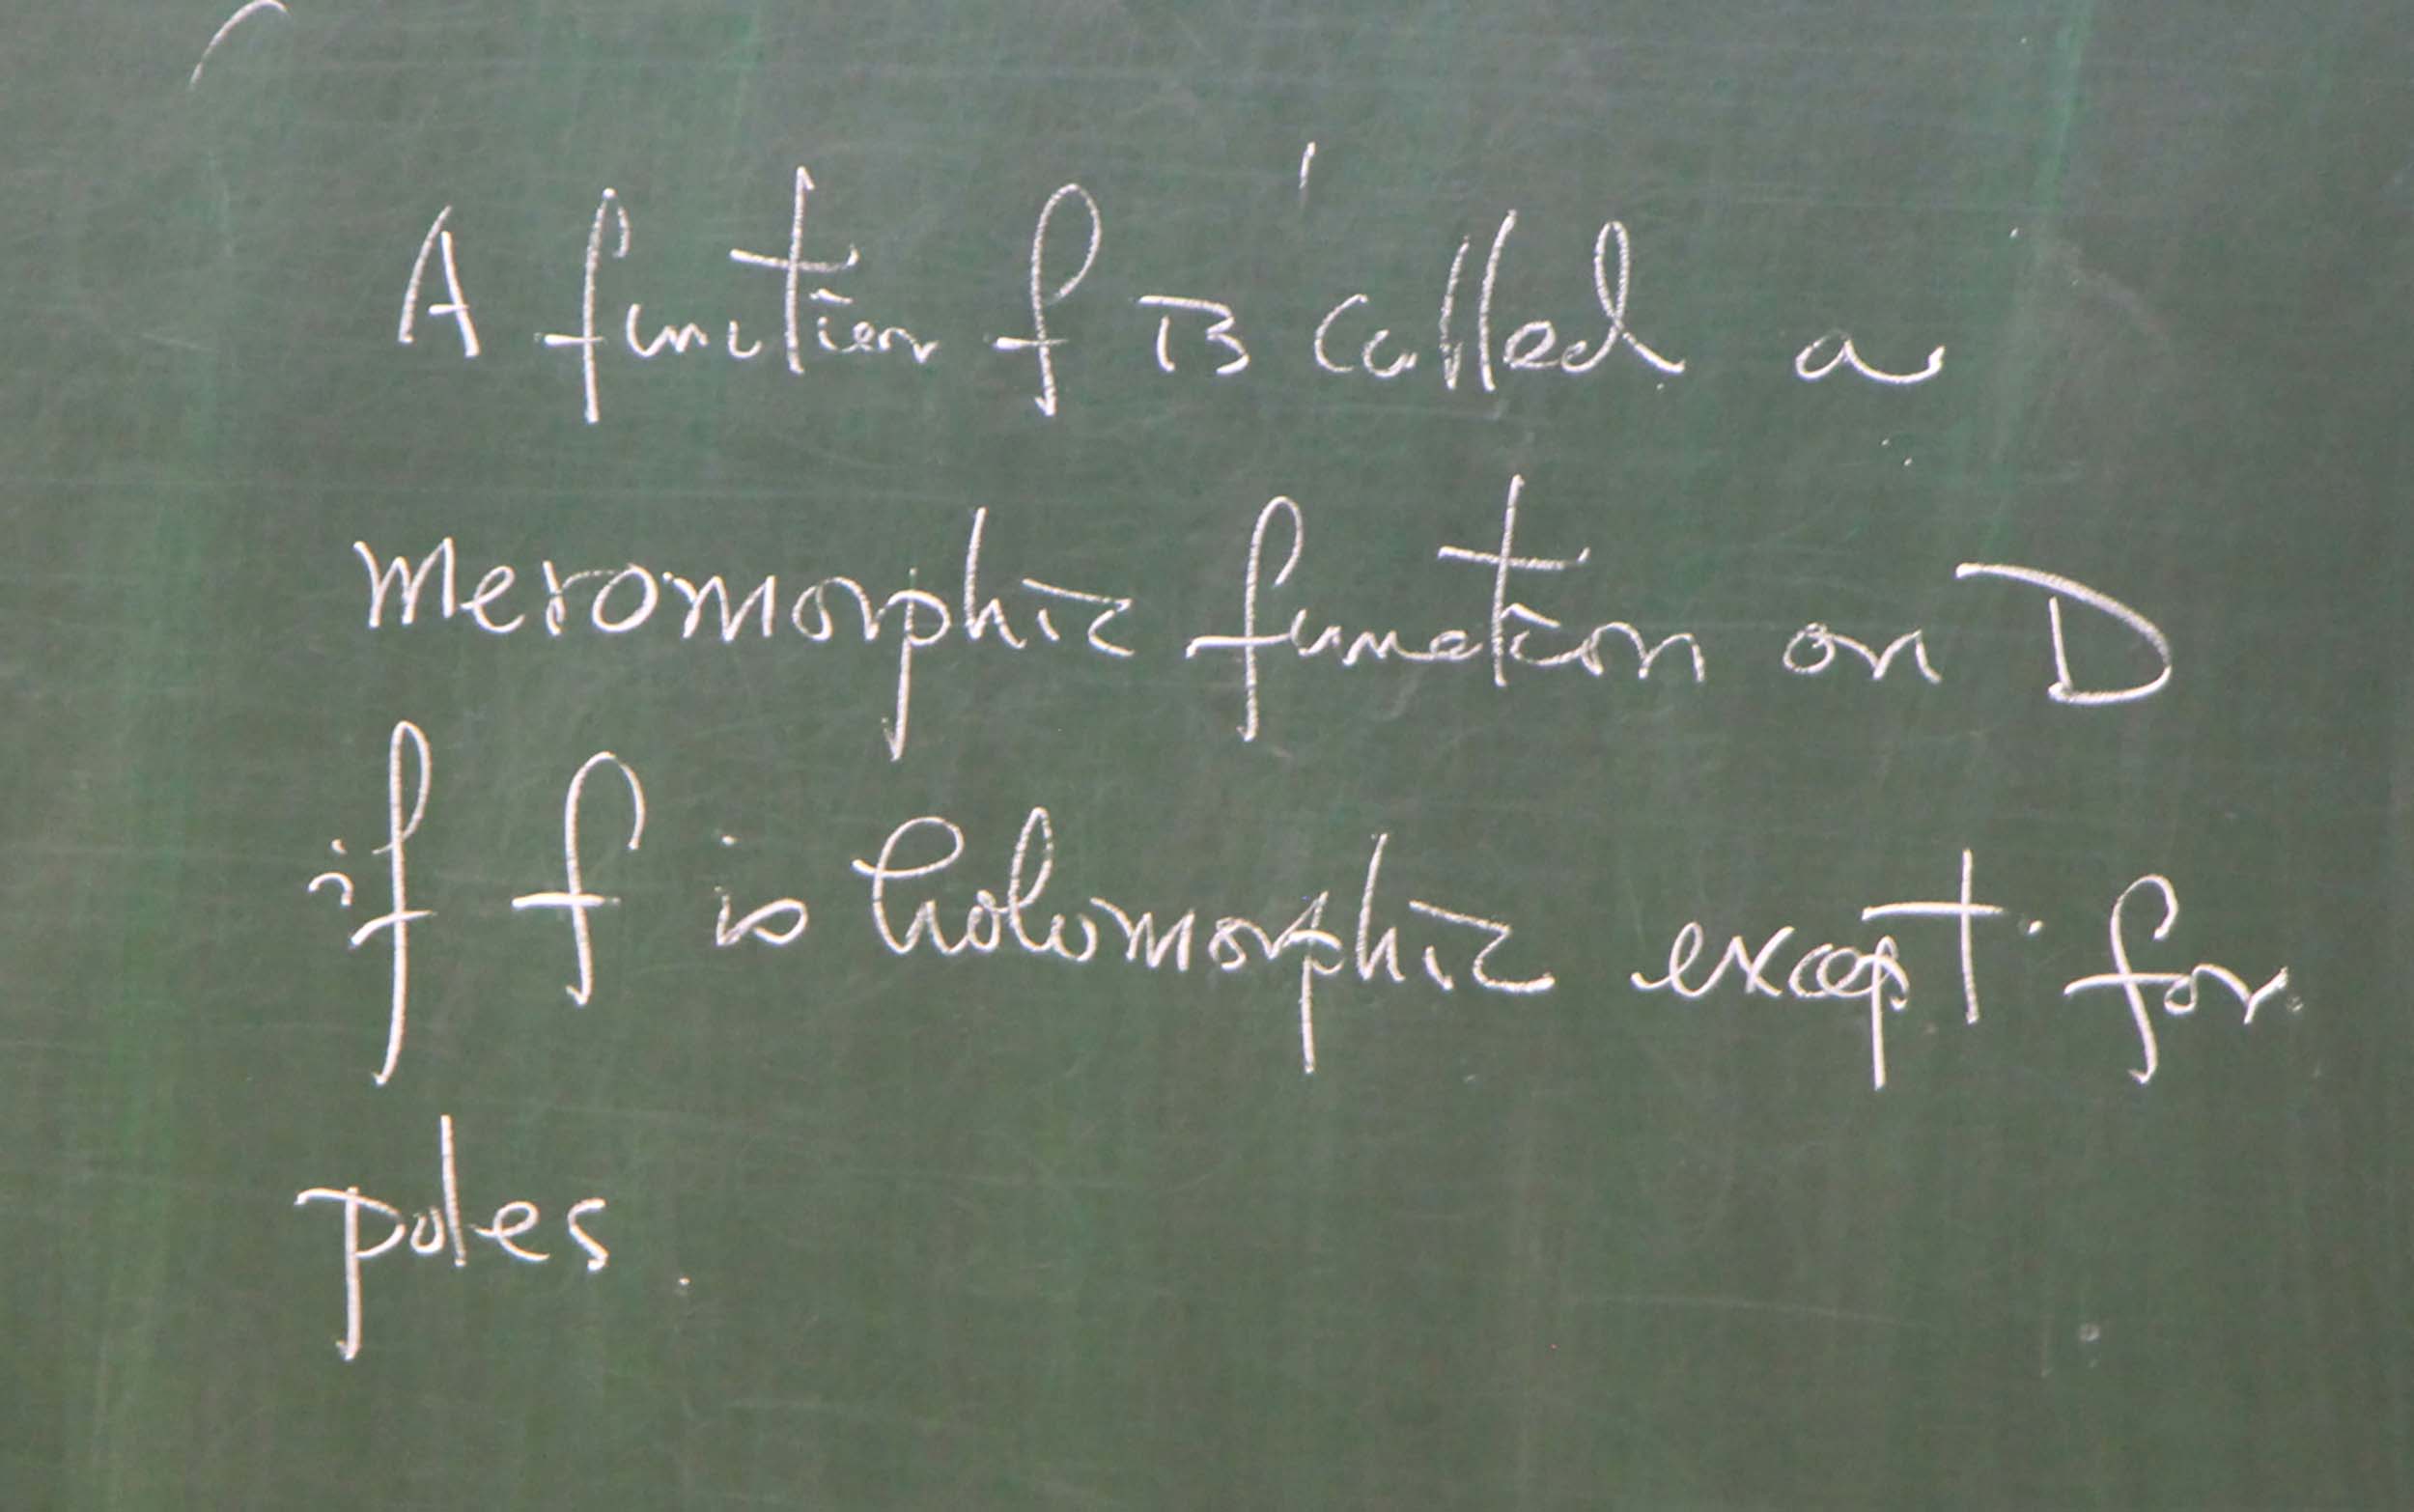 A function f is called a
meromorphic function on D
if f is holomorphic except for
poles.